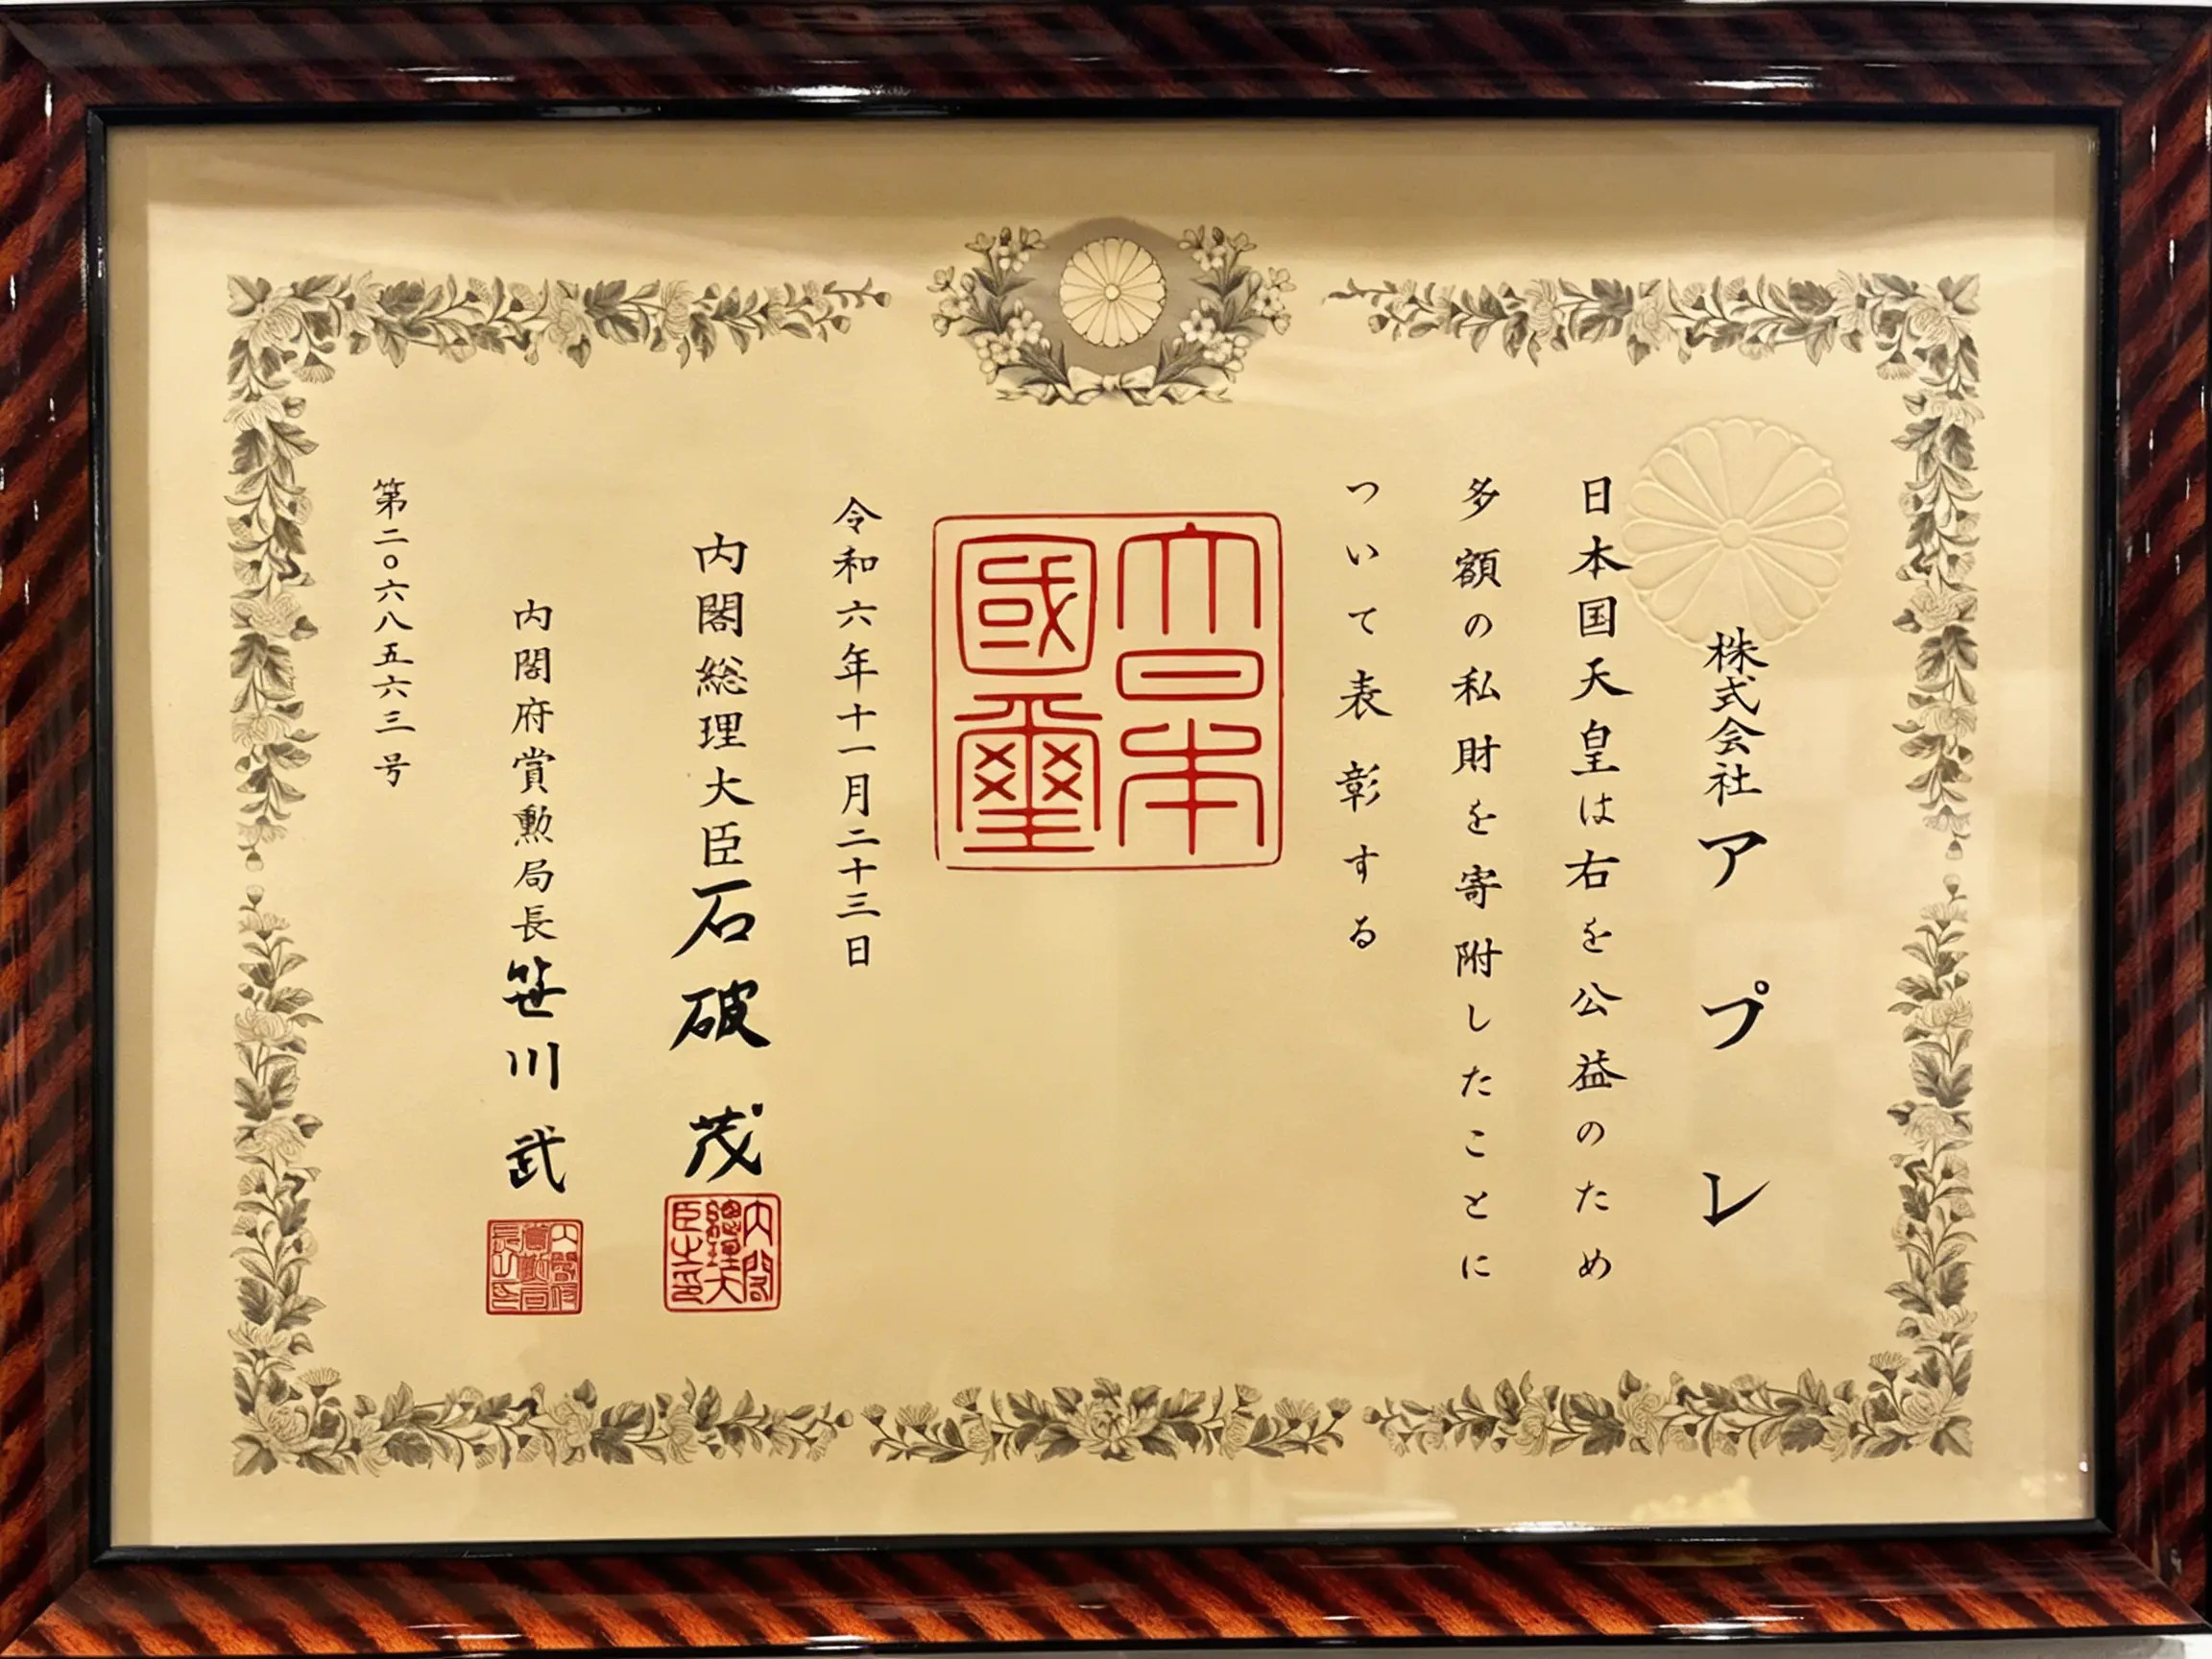 株式会社アプレ
日本国天皇は右を公益のため
多額の私財を寄附したことに
ついて表彰する
大日本
國璽
令和六年十一月二十三日
内閣総理大臣石破茂
内閣府賞勲局長笹川武
第二〇六八五六三号
内閣
總理大
臣之印